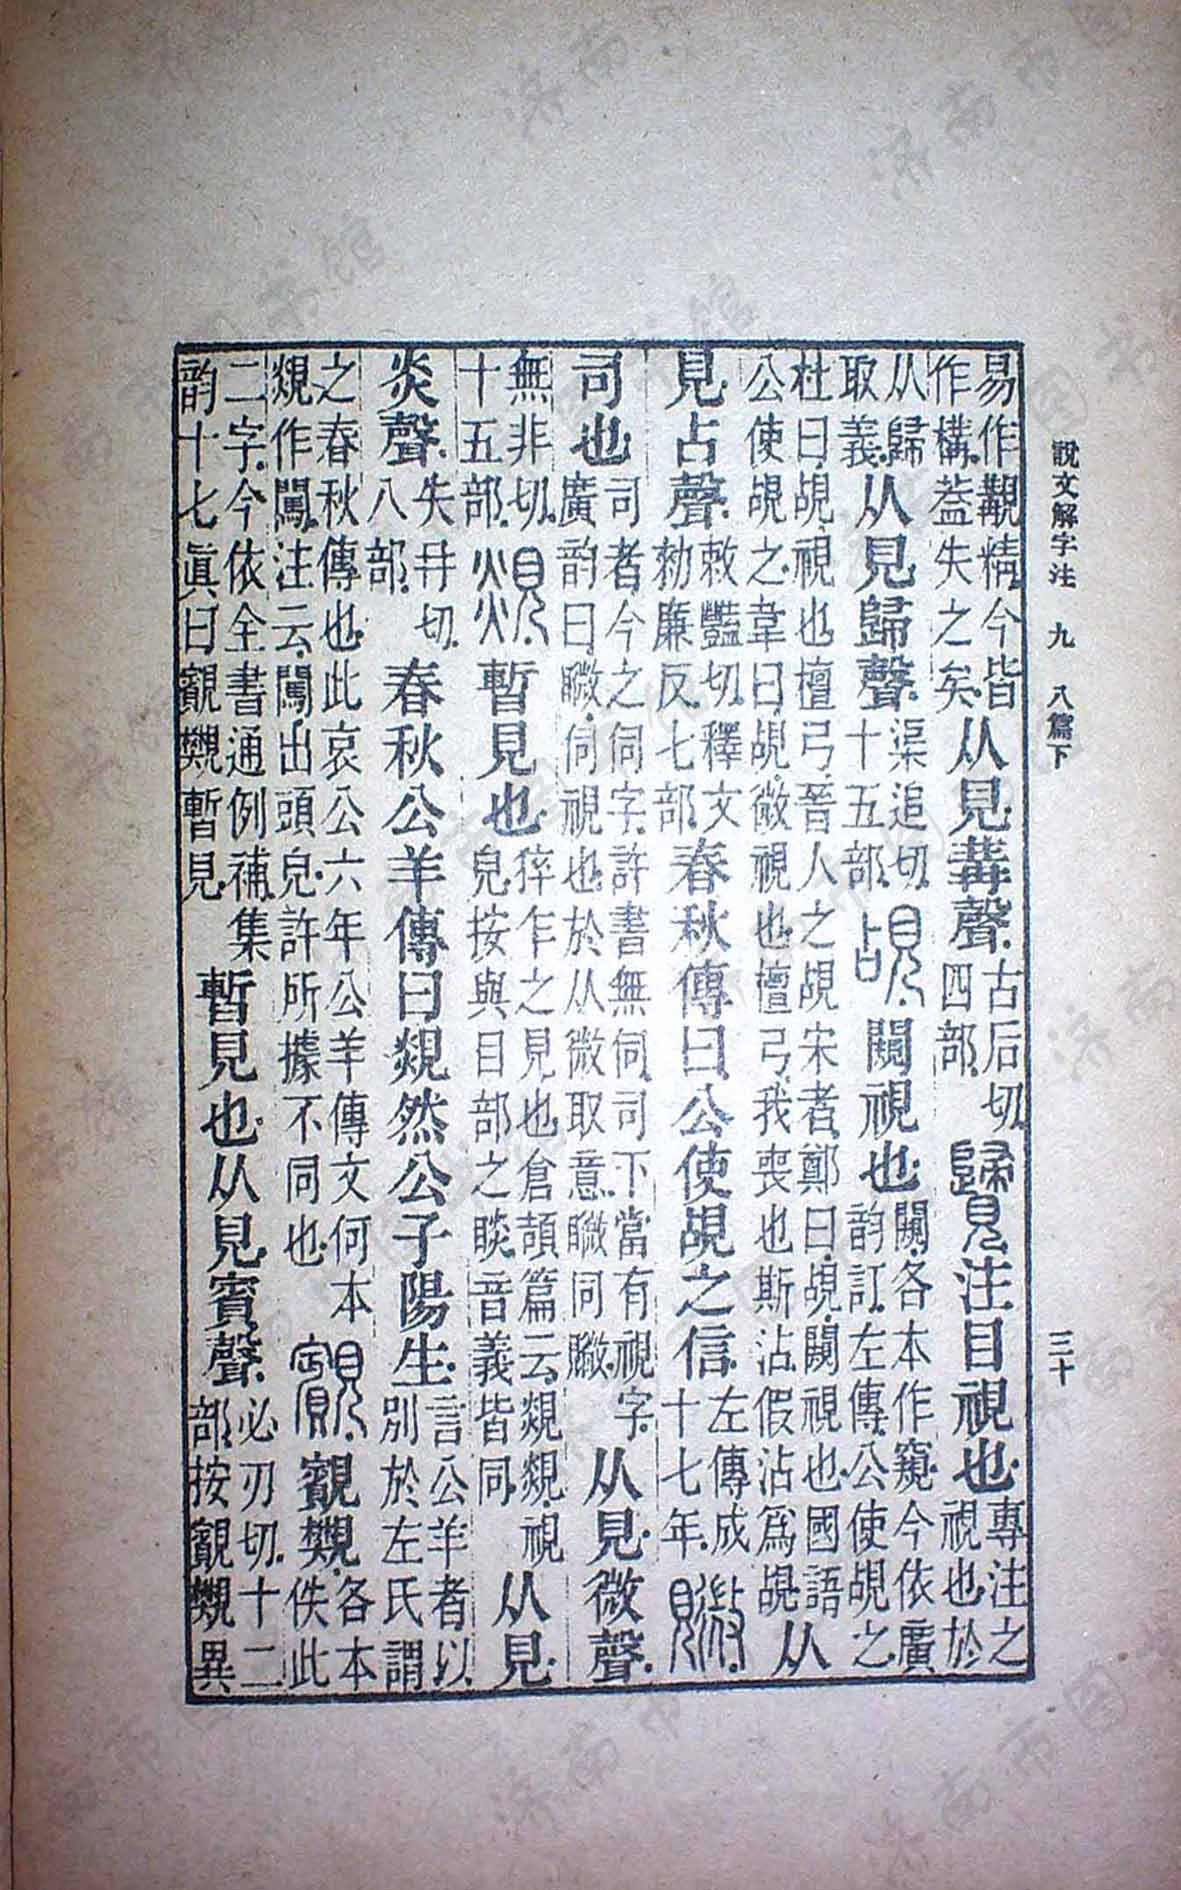 說文解字注 九 八篇下 三十
易作覯精今皆
作構葢失之矣
从見冓聲
古后切
四部
䙆注目視也
專注之
視也於
从歸
取義
从見歸聲
渠追切
十五部
覘闚視也
闚各本作窺今依廣
韵訂左傳公使覘之
杜曰覘視也檀弓晉人之覘宋者鄭曰覘闚視也國語
公使覘之韋曰覘微視也檀弓我喪也斯沾假沾爲覘
从
見占聲
敕豔切釋文
勑廉反七部
春秋傳曰公使覘之信
左傳成
十七年
覹
司也
司者今之伺字許書無伺司下當有視字
廣韵曰䁒伺視也於从微取意䁒同覹
从見微聲
無非切
十五部
覢暫見也
猝乍之見也倉頡篇云覢覢視
皃按與目部之睒音義皆同
从見
炎聲
失冄切
八部
春秋公羊傳曰覢然公子陽生
言公羊者以
別於左氏謂
之春秋傳也此哀公六年公羊傳文何本
覢作闖注云闖出頭皃許所據不同也
䚔䚔𧢜
各本
佚此
二字今依全書通例補集
韵十七眞曰䚔𧢜暫見
暫見也从見賓聲
必刃切十二
部按䚔𧢜異